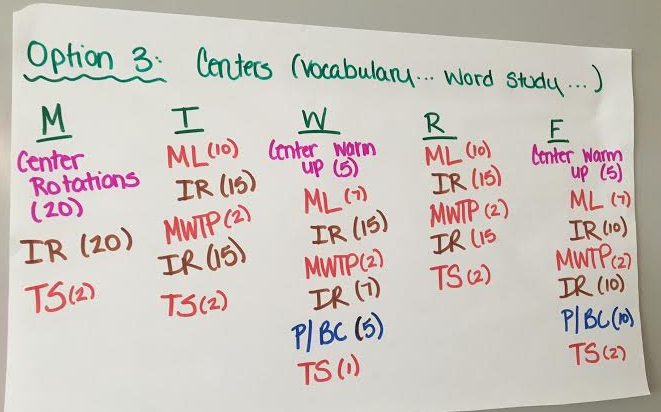 Option 3: Centers (vocabulary... word study...)
M
Center
Rotations
(20)
IR (20)
TS(2)
T
ML(10)
IR (15)
MWTP(2)
IR (15)
TS(2)
W
Center Warm
up (5)
ML (7)
IR (15)
MWTP(2)
IR (7)
P/BC (5)
TS (1)
R
ML (10)
IR (15)
MWTP (2)
IR (15
TS (2)
F
Center Warm
up (5)
ML (7)
IR (10)
MWTP(2)
IR (10)
P/BC (10)
TS (2)